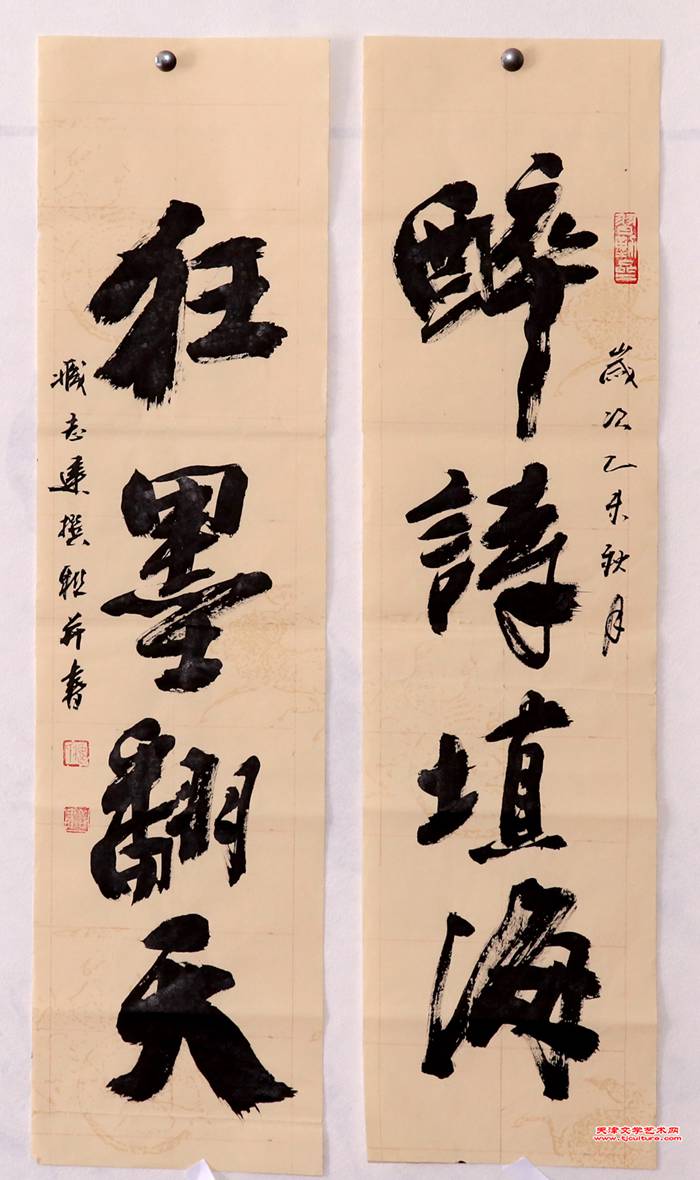 醉詩填海
歲次乙未秋月
狂墨翻天
臧志建撰聯并書
天津文学艺术网
www.tjculture.com